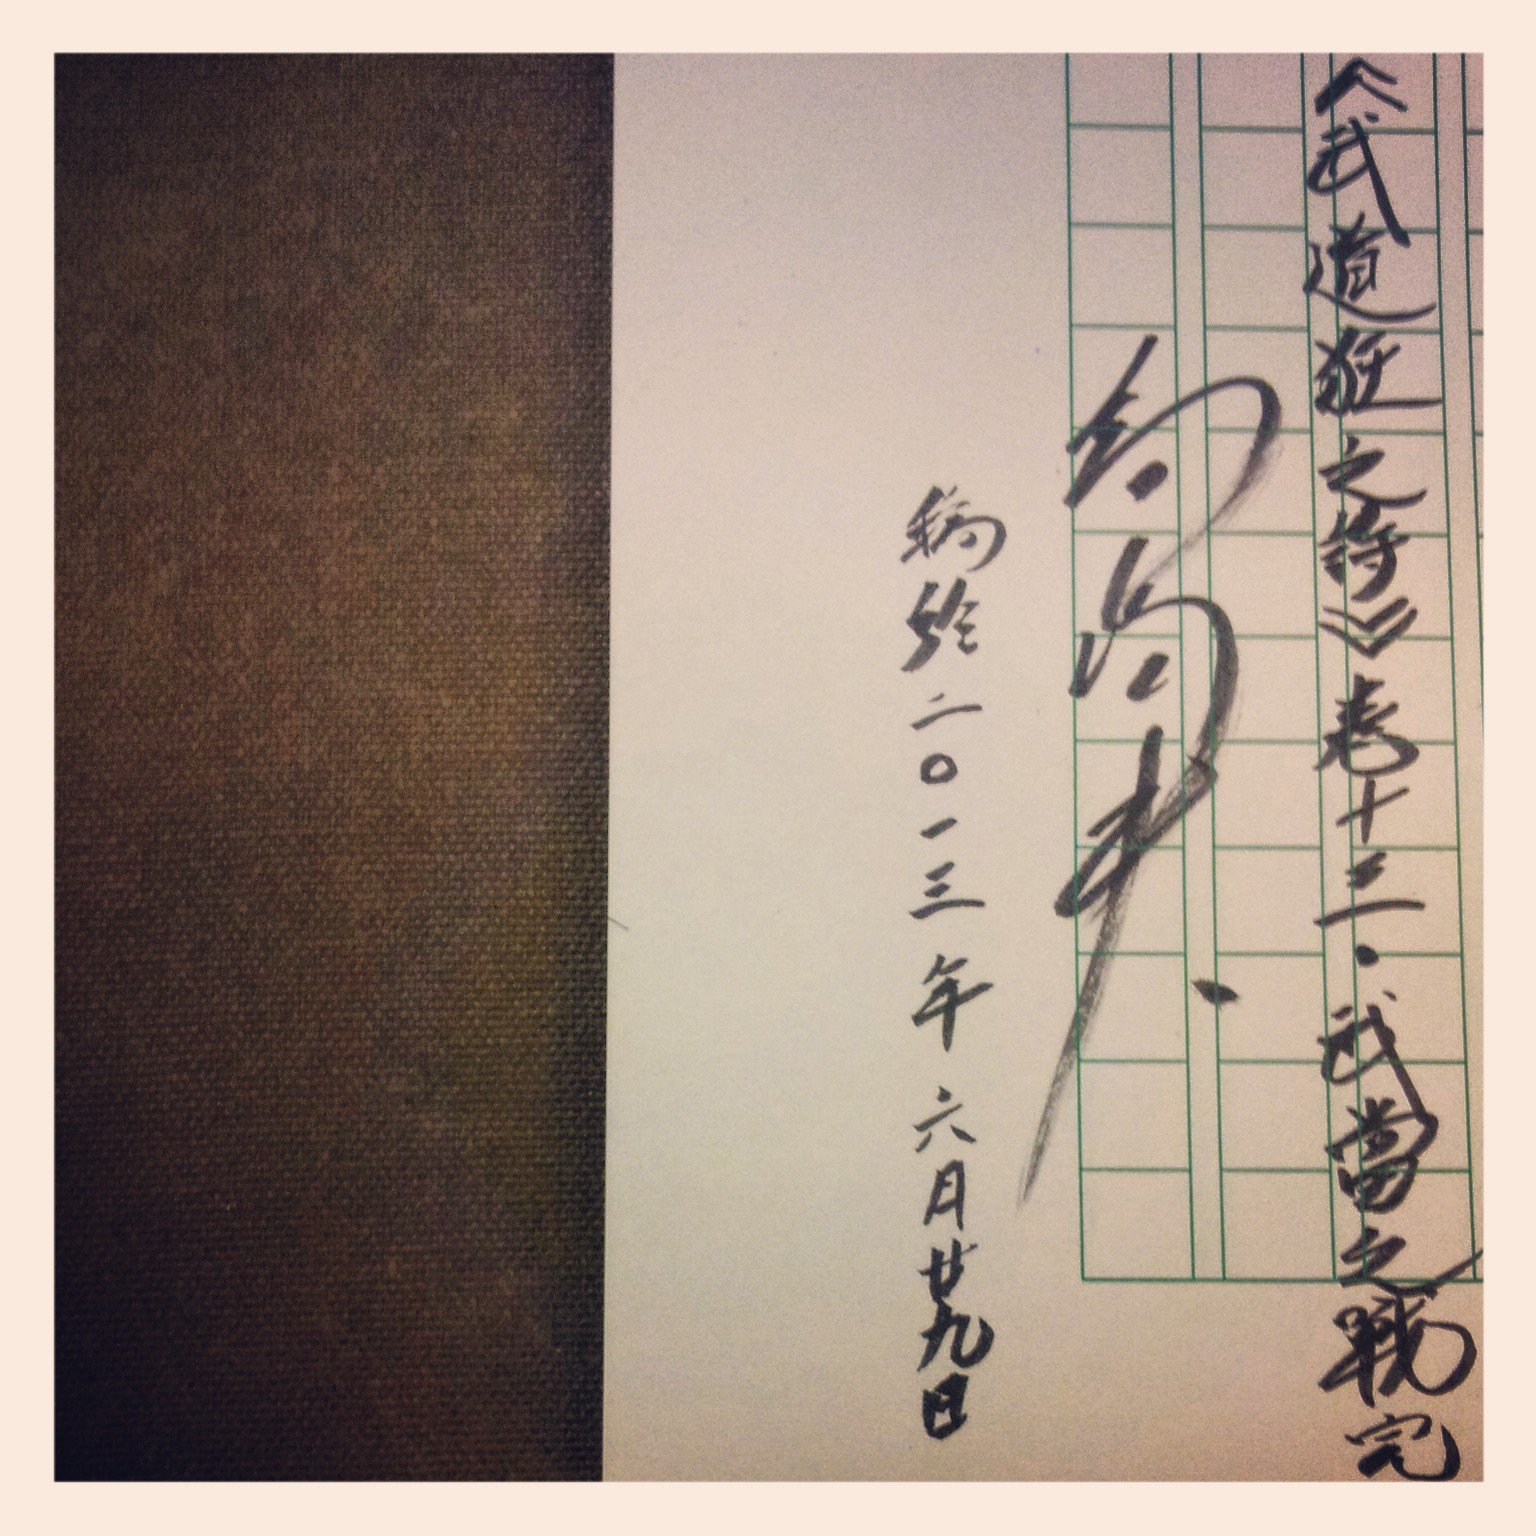 《武道狂之詩》卷十三·武當之戰完
稿於二〇一三年六月廿九日